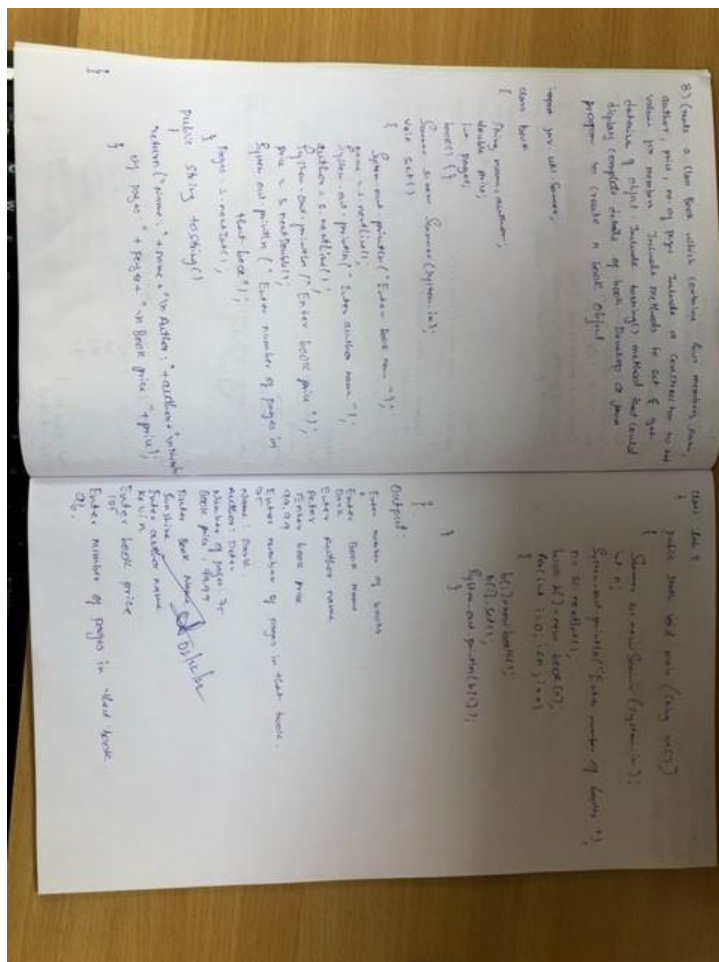 8) Create a class Book which contains four members, name,
author, price, no. of pages. Include a constructor to set
values for members. Include methods to set & get
details of object. Include toString() method that could
display complete details of book. Develop a java
program to create n book object.
import java.util.Scanner;
class book
{
String name, author;
double price;
int pages;
book() {}
Scanner s = new Scanner(System.in);
void set()
{
System.out.println("Enter book name");
name = s.nextLine();
System.out.println("Enter author name");
author = s.nextLine();
System.out.println("Enter book price");
price = s.nextDouble();
System.out.println("Enter number of pages in
that book");
pages = s.nextInt();
}
public String toString()
{
return("Name:" + name + "\n Author:" + author + "\n Number
of pages:" + pages + "\n Book price:" + price);
}
}
class lab
{
public static void main (String
{
Scanner s = new Scanner (System.in);
int n;
System.out.println("Enter number of books");
n = s.nextInt();
book b[] = new book[n];
for(int i=0; i<n; i++)
{
b[i] = new book();
b[i].set();
System.out.println(b[i]);
}
}
}
Output:
Enter number of books
Enter book name
Enter author name
Enter book price
99.99
Enter number of pages in that book.
Name:
Author:
Number of pages:
Book price: 99.99
Enter book name
Sunshine
Enter author name
Kevin
Enter book price
105
Enter number of pages in that book.
96.